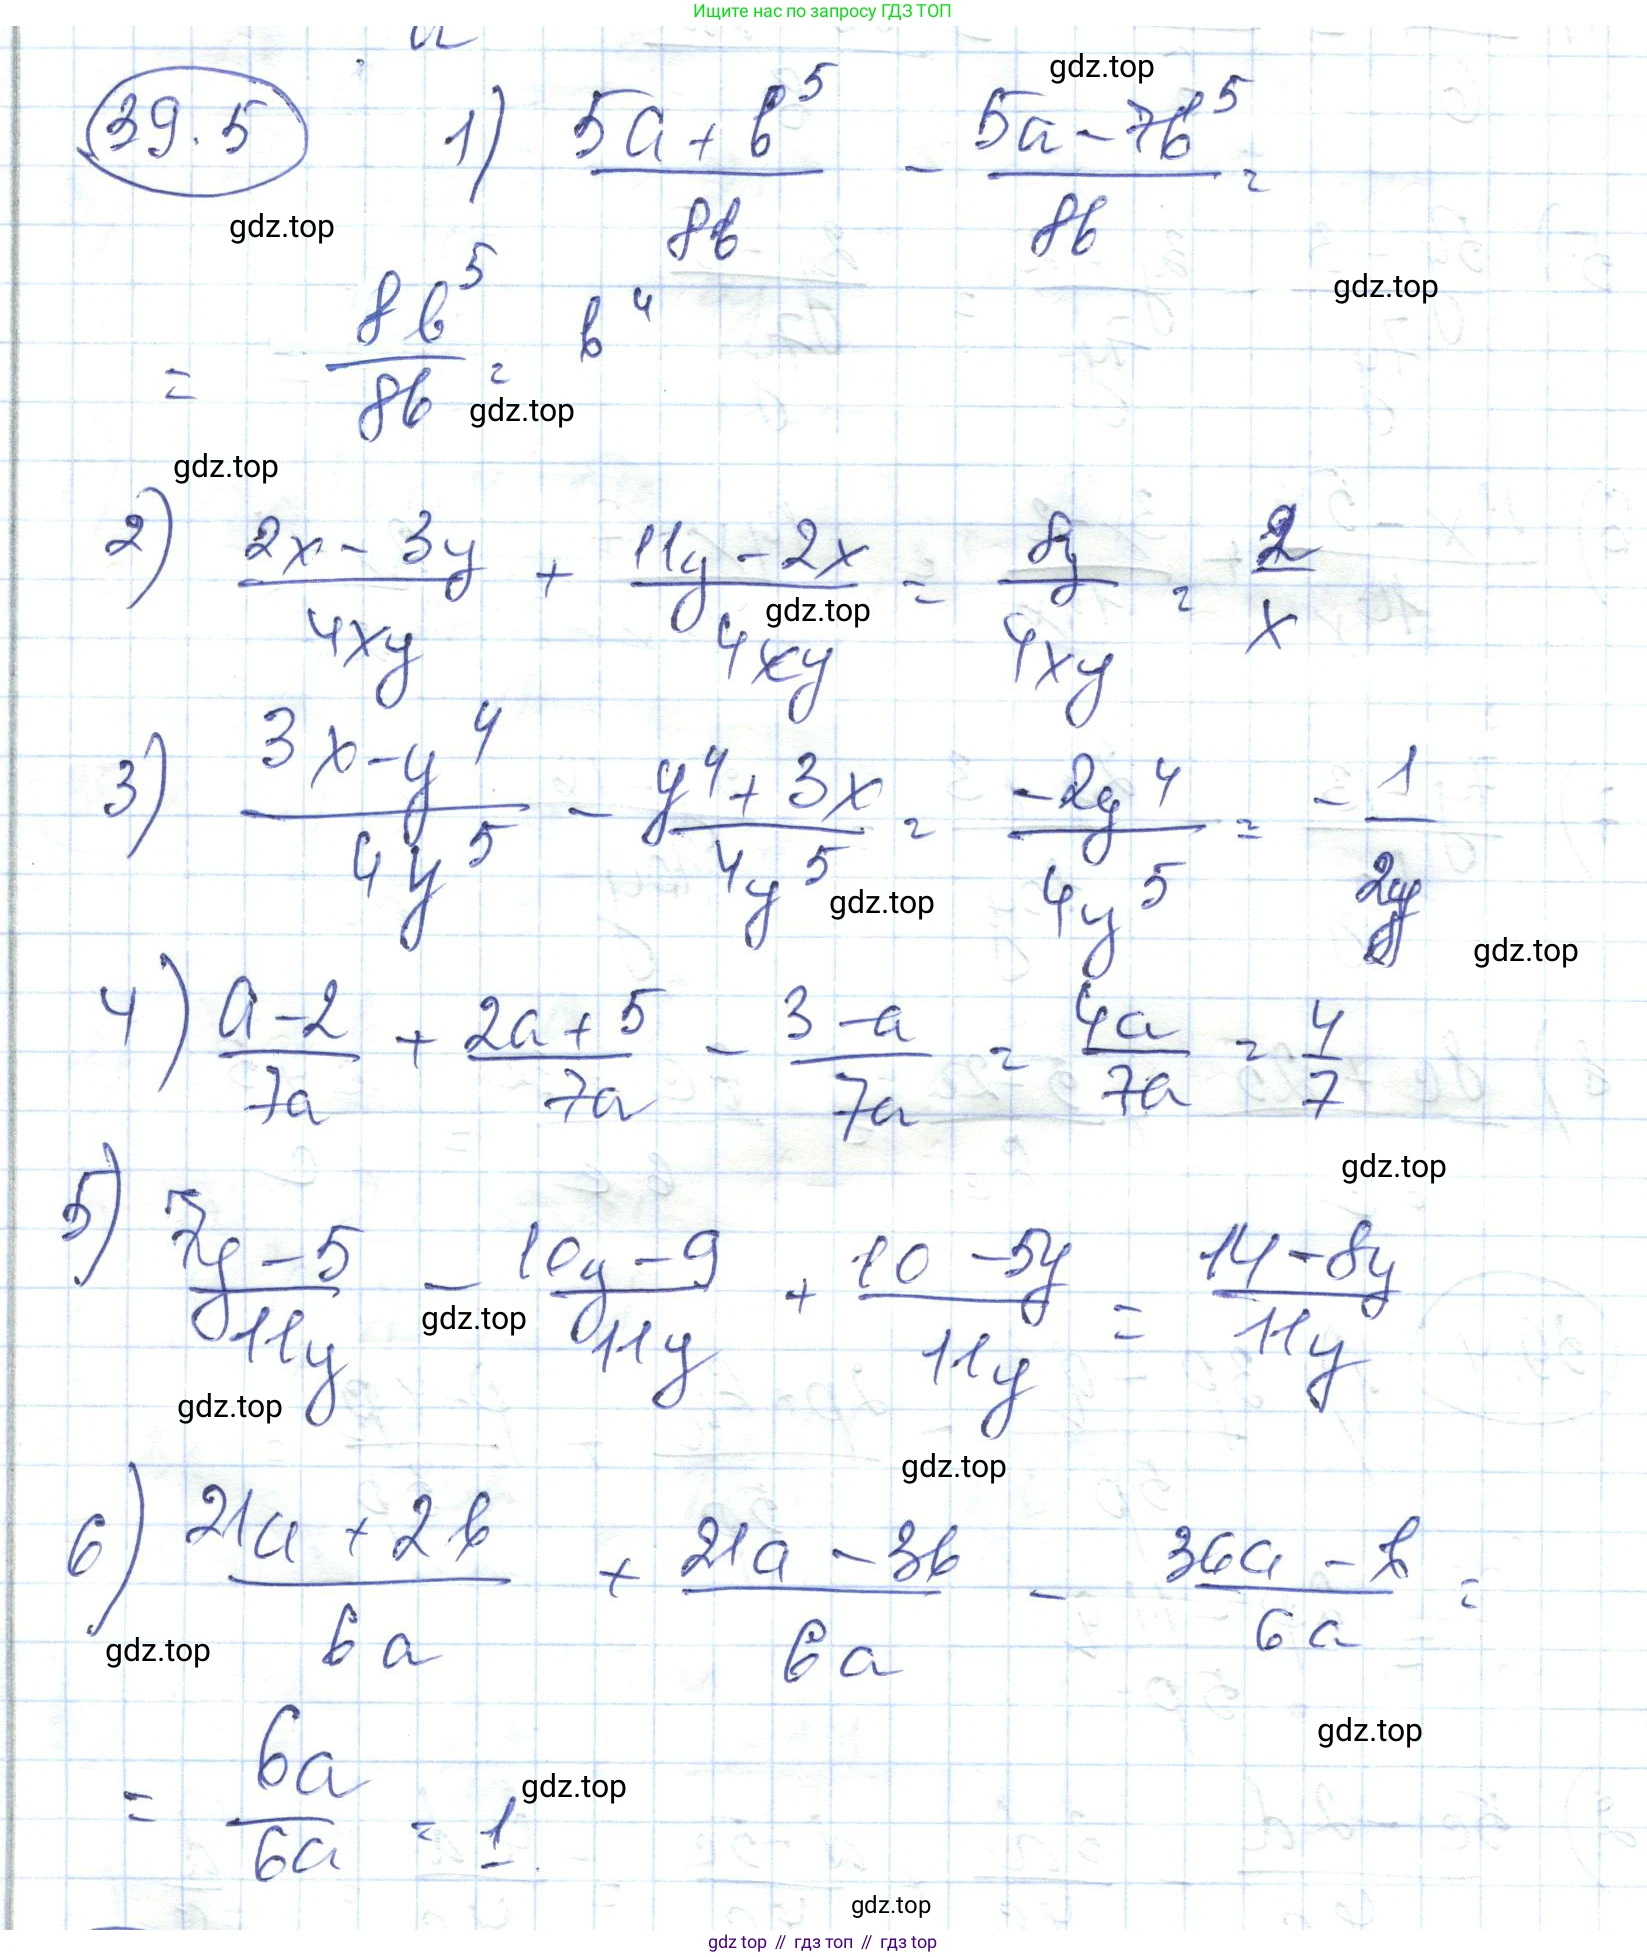 Ищите нас по запросу ГДЗ ТОП
gdz.top
39.5 1) (5a + b^5)/(8b) - (5a - 7b^5)/(8b) =
gdz.top
gdz.top
= (8b^5)/(8b) = b^4
gdz.top
gdz.top
2) (2x - 3y)/(4xy) + (11y - 2x)/(4xy) = (8y)/(4xy) = 2/x
gdz.top
3) (3x - y^4)/(4y^5) - (y^4 + 3x)/(4y^5) = (-2y^4)/(4y^5) = - 1/(2y)
gdz.top
gdz.top
4) (a - 2)/(7a) + (2a + 5)/(7a) - (3 - a)/(7a) = (4a)/(7a) = 4/7
gdz.top
5) (7y - 5)/(11y) - (10y - 9)/(11y) + (10 - 5y)/(11y) = (14 - 8y)/(11y)
gdz.top
gdz.top
gdz.top
6) (21a + 2b)/(6a) + (21a - 3b)/(6a) - (36a - b)/(6a) =
gdz.top
gdz.top
= (6a)/(6a) = 1
gdz.top
gdz.top
gdz top // гдз топ // гдз top